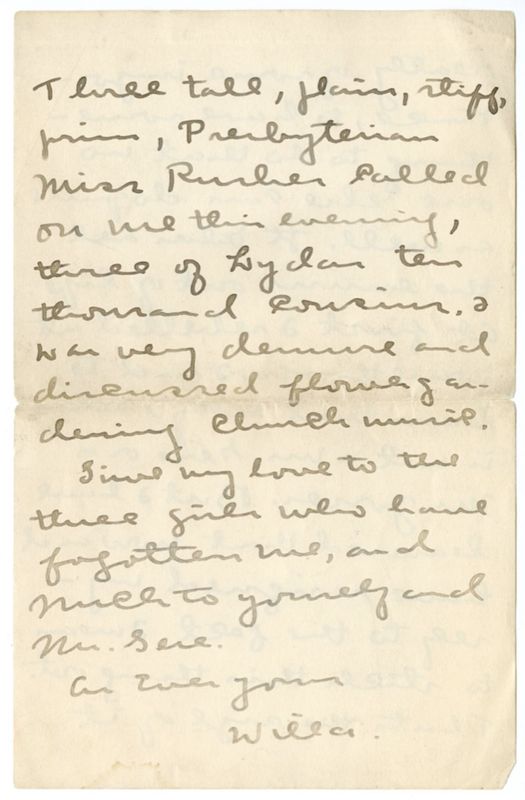 Three tall, plain, stiff,
prim, Presbyterian
Miss Rushes called
on me this evening,
three of Lydas ten
thousand cousins. I
was very demure and
discussed flower gar-
dening church music.
Give my love to the
three girls who have
forgotten me, and
much to yourself and
Mr. Gere.
As Ever yours
Willa.